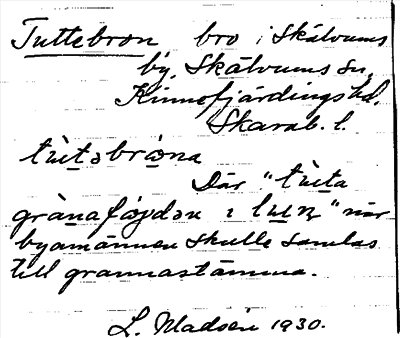 Tuttebron bro i Skälvums
by, Skälvums sn,
Kinnefjärdings hd.
Skarab. l.
tùtəbrøna
Där "tùta
gràna i lur" när
byamännen skulle samlas
till grannastämma.
L. Madsén 1930.